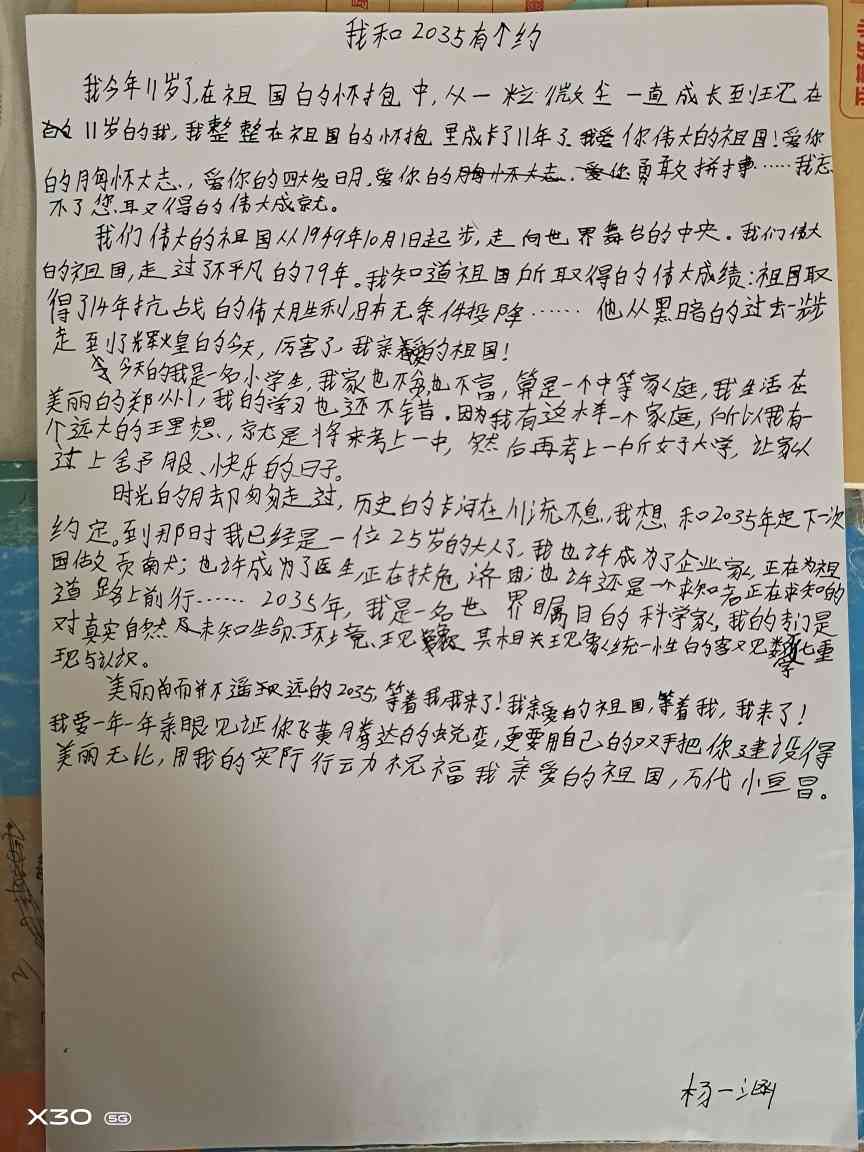 我和2035有个约
我今年11岁了,在祖国的怀抱中,从一粒微尘一直成长到现在
11岁的我,我整整在祖国的怀抱里成长了11年了.我爱你伟大的祖国!爱你
的胸怀大志.,爱你的四大发明,爱你的勇敢拼搏……我忘
不了您取得的伟大成就。
我们伟大的祖国从1949年10月1日起步,走向世界舞台的中央。我们伟大
的祖国,走过了不平凡的79年。我知道祖国所取得的伟大成绩:祖国取
得了14年抗战的伟大胜利,日本无条件投降……他从黑暗的过去一步步
走到了辉煌的今天,厉害了,我亲爱的祖国!
今天的我是一名小学生,我家也不穷也不富,算是一个中等家庭,我生活在
美丽的郑州,我的学习也还不错.因为我有这样一个家庭,所以我有一
个远大的理想.,就是将来考上一中,然后再考上一所女子大学,让家人
过上舒服、快乐的日子。
时光的脚匆匆走过,历史的长河在川流不息.,我想和2035年定下一次
约定。到那时我已经是一位25岁的大人了,我也许成为了企业家,正在为祖
国做贡献;也许成为了医生,正在扶危济困;也许还是一个求知者正在求知的
道路上前行……2035年,我是一名世界瞩目的科学家,我的专门是
对真实自然及未知生命、环境、现象 其相关现象统一性的客观数字化重
现与认识。
美丽而并不遥远的2035,等着我,我来了!我亲爱的祖国,等着我,我来了!
我要一年一年亲眼见证你飞黄腾达的蜕变,更要用自己的双手把你建设得
美丽无比,用我的实际行动祝福我亲爱的祖国,万代小恒昌。
杨一涵
X30 5G